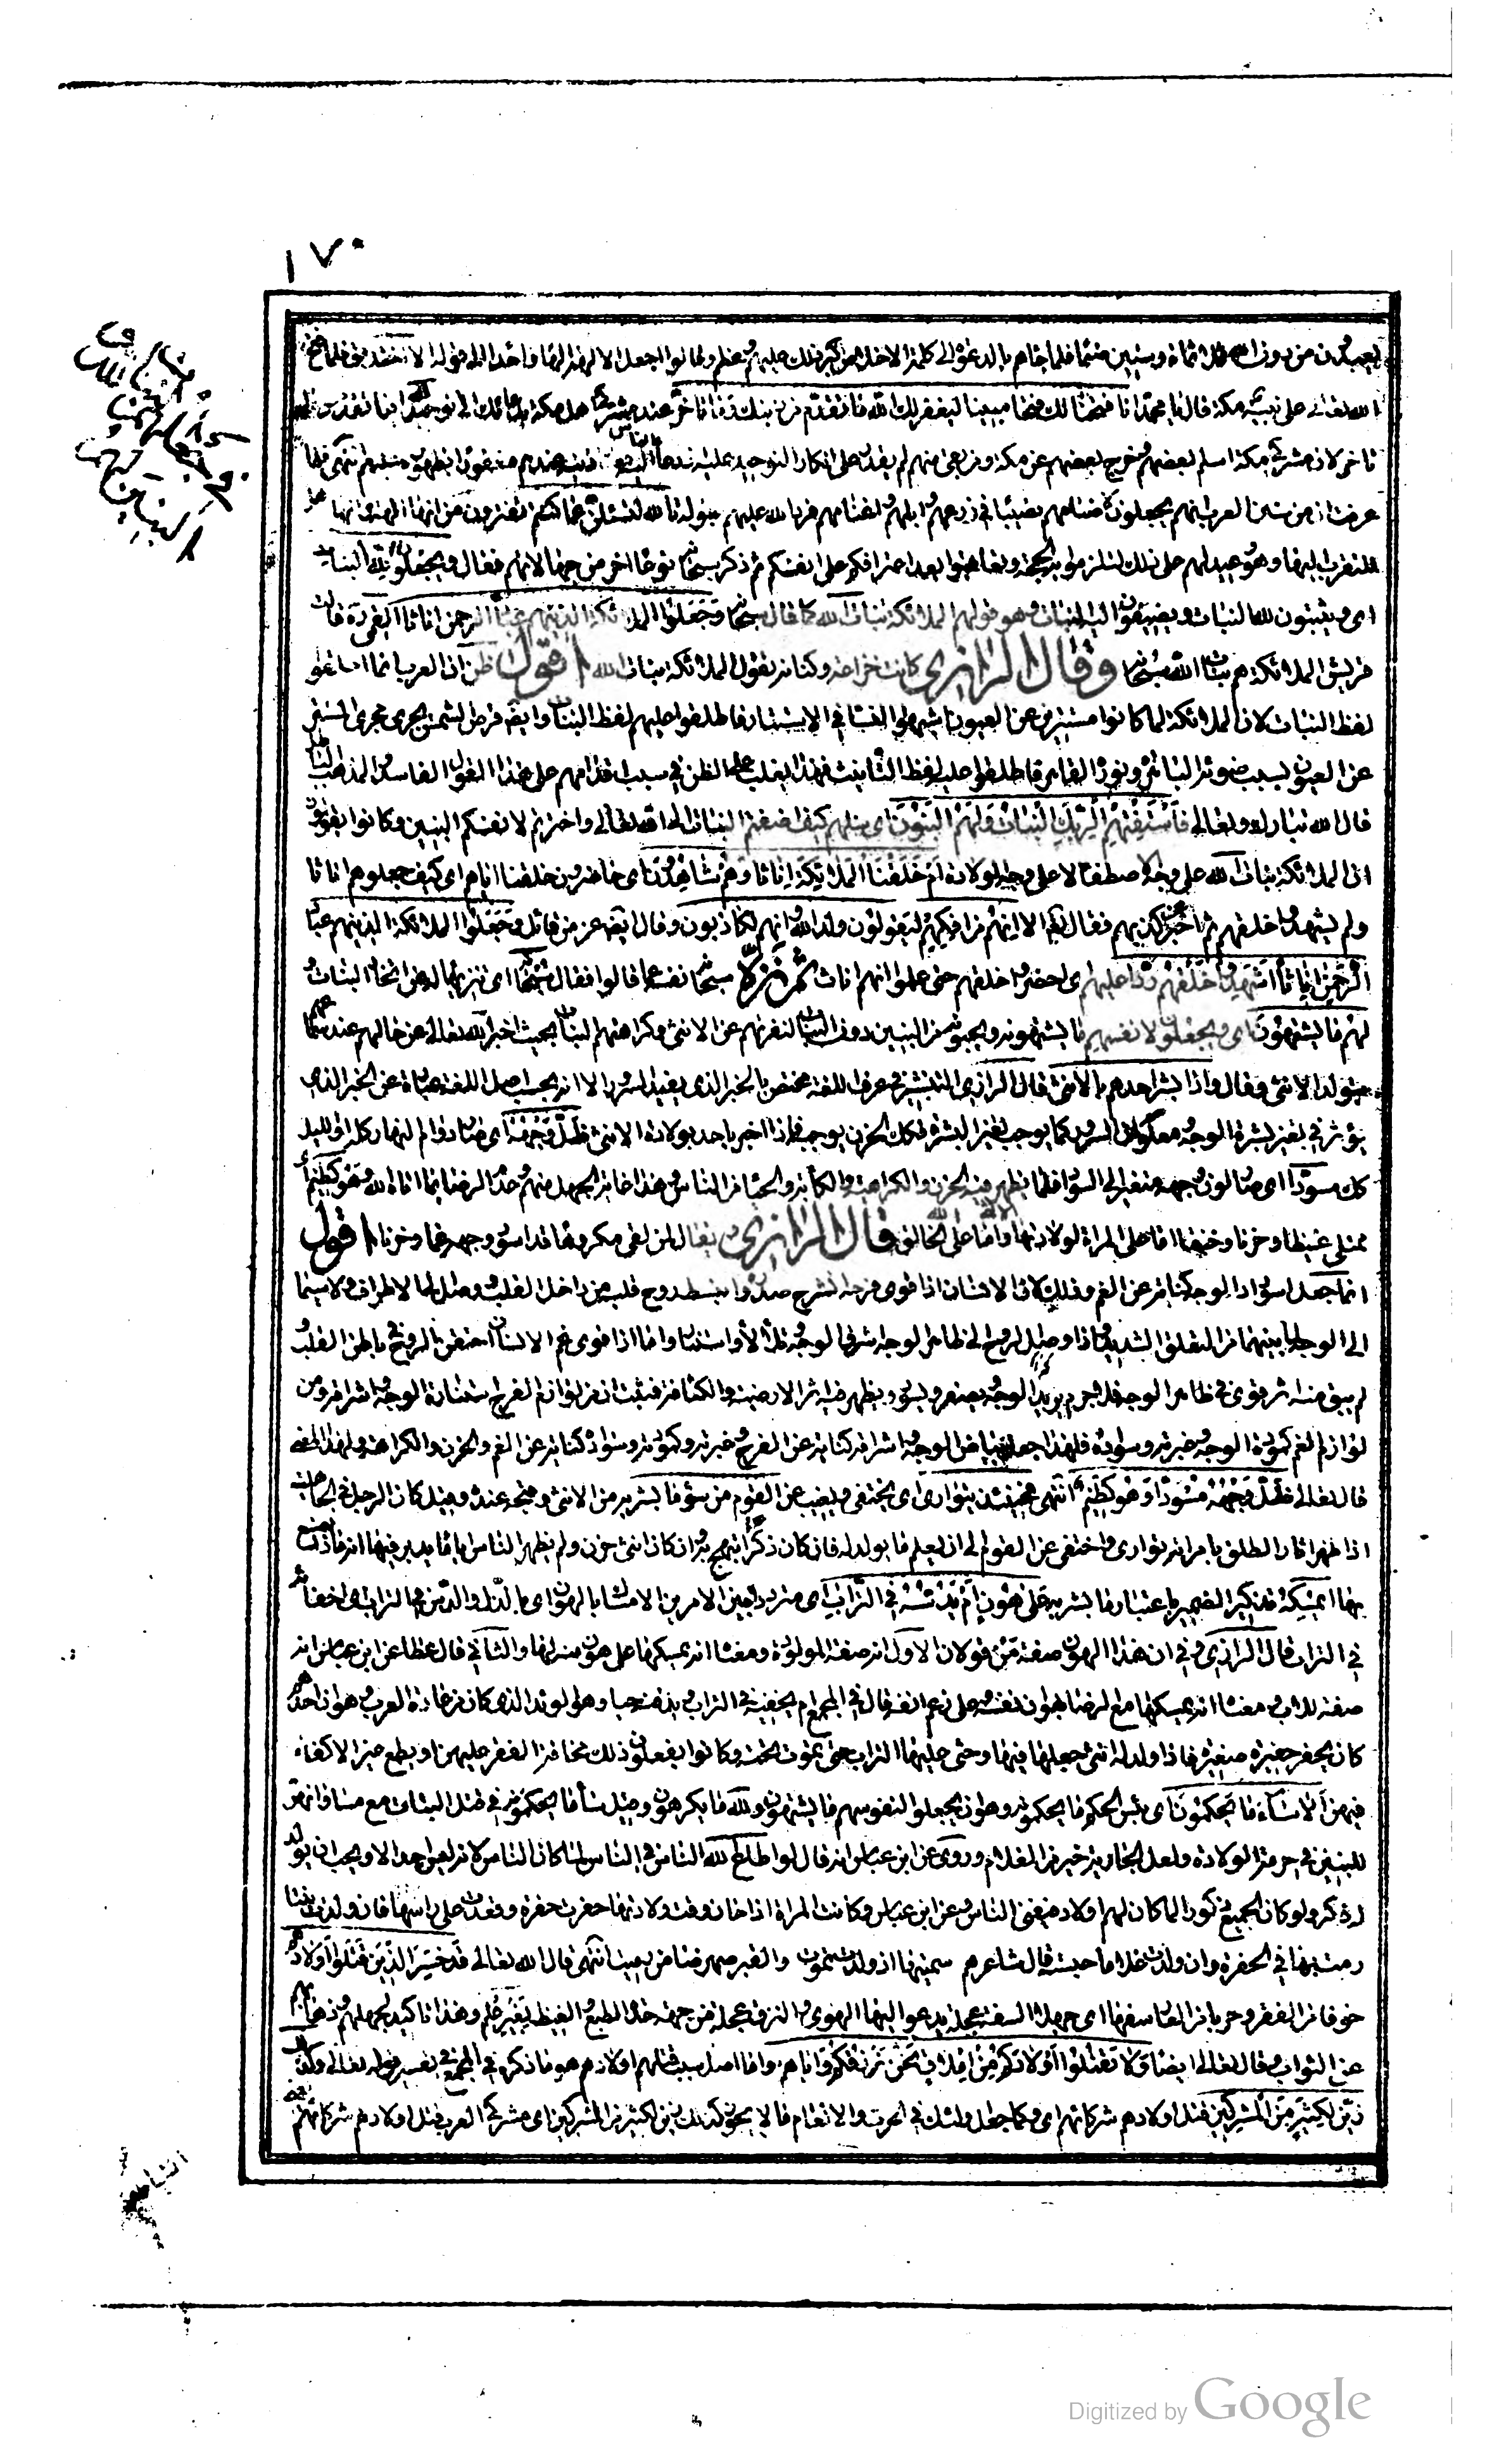 ١٧٠
يعبدون من دون الله ثلثمائة وستين صنما فلما جاءهم بالدعوة الى كلمة الاخلاص كبر ذلك عليهم وعظم وقالوا اجعل الالهة الها واحدا الى قوله الا اختلاق فلما فتح
الله تعالى على نبيه مكة قال يا محمد انا فتحنا لك فتحا مبينا ليغفر لك الله ما تقدم من ذنبك وما تاخر عند مشركى اهل مكة بدعائك الى توحيد الله فيما تقدم وما
تاخر لان مشركى مكة اسلم بعضهم وخرج بعضهم عن مكة ومن بقى منهم لم يقدر على انكار التوحيد عليه اذ دعا الناس اليه فصار ذنبه عندهم مغفورا بظهوره عليهم انتهى فلما
عرفت ان من سنن العرب انهم يجعلون لاصنامهم نصيبا فى زروعهم وابلهم واغنامهم فرد الله عليهم بقوله تالله لتسئلن عما كنتم تفترون من انها الهة وانها اهل
للتقرب اليها وهو وعيد لهم على ذلك
اى ويثبتون لله البنات ويضيفون اليه البنات وهو قولهم الملائكة بنات الله كما قال سبحانه وجعلوا الملائكة الذينهم عباد الرحمن اناثا القمى ره قالت
قريش الملائكة هم بنات الله سبحانه وقال الرازى كانت خزاعة وكنانة تقول الملائكة بنات الله اقول ظن ان العرب انما اطلقوا
لفظ البنات لان الملائكة لما كانوا مستترين عن العيون اشبهوا النساء فى الاستتار فاطلقوا عليهم لفظ البنات وايضا قرص الشمس يجرى مجرى المستتر
عن العيون بسبب ضوئه الباهر ونوره القاهر فاطلقوا عليه لفظ التانيث فهذا يغلب على الظن فى سبب اقدامهم على هذا القول الفاسد والمذهب الباطل
قال الله تبارك وتعالى فاستفتهم الربك البنات ولهم البنون اى سلهم كيف اضفتم البنات الى الله تعالى واخترتم لانفسكم البنين وكانوا يقولون
ان الملائكة بنات الله على وجه الاصطفاء لا على وجه الولادة ام خلقنا الملائكة اناثا وهم شاهدون اى حاضرون خلقنا اياهم اى كيف جعلوهم اناثا
ولم يشهدوا خلقهم ثم اخبر عن كذبهم فقال الا انهم من افكهم ليقولون ولد الله وانهم لكاذبون وقال ايضا عز من قائل وجعلوا الملائكة الذينهم عباد
الرحمن اناثا اشهدوا خلقهم رد عليهم اى احضروا خلقهم حتى علموا انهم اناث ثم نزه سبحانه نفسه عما قالوا فقال سبحانه اى تنزيها له عن اتخاذ البنات و
لهم ما يشتهون اى ويجعلون لانفسهم ما يشتهونه ويحبونه من البنين دون البنات لنفرتهم عن الانثى وكراهتهم البنات بحيث اخبر الله تعالى عن حالهم عند علمهم
بتولد الانثى وقال واذا بشر احدهم بالانثى قال الرازى التبشير فى عرف اللغة مختص بالخبر الذى يفيد السرور الا انه بحسب اصل اللغة عبارة عن الخبر الذى
يؤثر فى تغير بشرة الوجه ومعلوم ان السرور كما يوجب تغير البشرة فكك الحزن يوجبه فاذا اخبر احد بولادة الانثى ظل وجهه اى صار دوام النهار كله او الليل
كله مسودا اى صار لون وجهه متغيرا الى السواد لما يظهر فيه الحزن والكراهية والكأبة والحياء من الناس وهذا غاية الجهل منهم وعدم الرضا بما اتاه الله وهو كظيم اى
ممتلى غيظا وحزنا وحنقا اما على المراة لولادتها واما على الخالق قال الرازى يقال لمن لقى مكروها قد اسود وجهه غما وحزنا اقول
انما جعل اسوداد الوجه كناية عن الغم وذلك لان الانسان اذا قوى فرحه انشرح صدره وانبسط روح قلبه من داخل القلب ووصل الى الاطراف ولا سيما
الى الوجه لما بينهما من التعلق الشديد واذا وصل الروح الى ظاهر الوجه اشرق الوجه وتلألأ واستنار واما اذا قوى غم الانسان احتقن الروح فى باطن القلب و
لم يبق منه اثر قوى فى ظاهر الوجه فلا جرم يربد الوجه ويصفر ويسود ويظهر فيه اثر الارضية والكثافة فثبت ان من لوازم الفرح استنارة الوجه واشراقه ومن
لوازم الغم كمودة الوجه وغبرته وسواده فلهذا جعل بياض الوجه واشراقه كناية عن الفرح وغبرته وكمودته وسواده كناية عن الغم والحزن والكراهة ولهذا المعنى
قال تعالى ظل وجهه مسودا وهو كظيم انتهى فحينئذ يتوارى اى يختفى ويغيب عن القوم من سوء ما بشر به من الانثى وقبحه عنده وقيل كان الرجل فى الجاهلية
اذا ظهر اثار الطلق بامراته توارى واختفى عن القوم الى ان يعلم ما يولد له فان كان ذكرا ابتهج به وان كان انثى حزن ولم يظهر للناس اياما يدبر فيها انه ماذا يصنع
بها ايمسكه تذكير الضمير باعتبار ما بشر به على هون ام يدسه فى التراب اى متردد بين الامرين الامساك بالهون اى بالذل والدس فى التراب اى اخفائه
فى التراب قال الرازى وفى ان هذا الهون صفة من قولان الاول انه صفة المولودة ومعناه انه يمسكها على هون منه لها والثانى قال عطا عن ابن عباس انه
صفة للاب ومعناه انه يمسكها مع الرضا بهوان نفسه وعلى رغم انفه قال فى المجمع ام يخفيه فى التراب ويدفنه حيا وهو الوئد الذى كان من عادة العرب وهو ان احدهم
كان يحفر حفيرة صغيرة فاذا ولد له انثى جعلها فيها وحثى عليها التراب حتى تموت تحته وكانوا يفعلون ذلك مخافة الفقر عليهن او يطمع غير الاكفاء
فيهن الا ساء ما يحكمون اى بئس الحكم ما يحكمونه وهو ان يجعلوا لنفوسهم ما يشتهون ولله ما يكرهون وقيل ساء ما يحكمونه فى قتل البنات مع مساواتهن
للبنين فى حرمة الولادة ولعل الجارية خير من الغلام وروى عن ابن عباس انه قال لو اطاع الله الناس فى الناس لما كان الناس لانه ليس احد الا ويحب ان يولد
له ذكر ولو كان الجميع ذكورا لما كان لهم اولاد فيفنى الناس وعن ابن عباس وكانت المراة اذا حان وقت ولادتها حفرت حفرة وقعدت على راسها فان ولدت بنتا
رمت بها فى الحفرة وان ولدت غلاما حبسته قال شاعرهم سميتها اذ ولدت تموت والقبر صهر ضامن زميت انتهى قال الله تعالى قد خسر الذين قتلوا اولادهم
خوفا من الفقر وهربا من العار سفها اى جهلا السفه عجلة يدعو اليها الهوى والنزق عجلة من جهة حدة الطبع والغيظ بغير علم وهذا تاكيد لجهلهم وذهابهم
عن الثواب وقال تعالى ايضا ولا تقتلوا اولادكم من املاق نحن نرزقكم واياهم واما اصل سبب قتلهم اولادهم هو ما ذكره فى المجمع فى تفسير قوله تعالى وكذلك
زين لكثير من المشركين قتل اولادهم شركاؤهم اى وكما جعل اولئك فى الحرث والانعام ما لا يجوز كذلك زين لكثير من المشركين اى مشركى العرب قتل اولادهم شركاؤهم
Digitized by Google